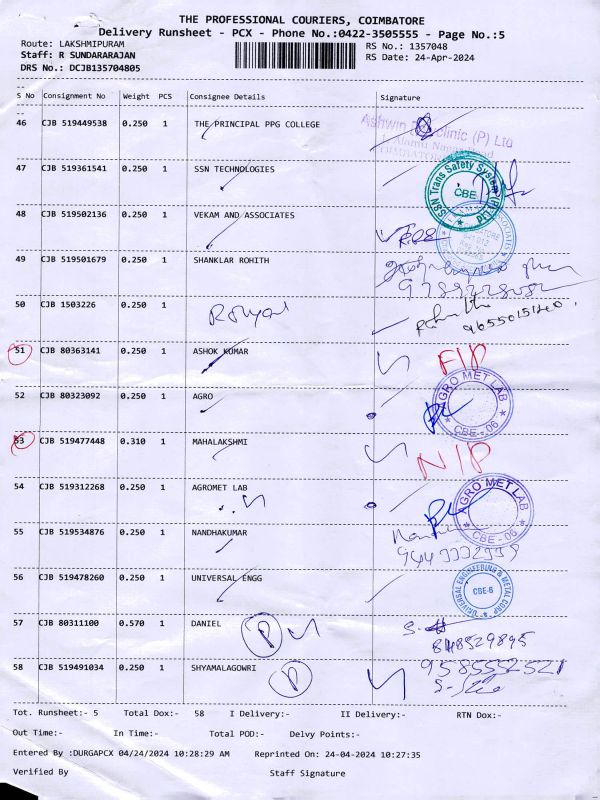 THE PROFESSIONAL COURIERS, COIMBATORE
Delivery Runsheet - PCX - Phone No.:0422-3505555 - Page No.:5
Route: LAKSHMIPURAM RS No.: 1357048
Staff: R SUNDARARAJAN RS Date: 24-Apr-2024
DRS No.: DCJB135704805
S No Consignment No Weight PCS Consignee Details Signature
46 CJB 519449538 0.250 1 THE PRINCIPAL PPG COLLEGE
47 CJB 519361541 0.250 1 SSN TECHNOLOGIES
SSN Trans Safety System (P) Ltd
CBE
48 CJB 519502136 0.250 1 VEKAM AND ASSOCIATES
49 CJB 519501679 0.250 1 SHANKLAR ROHITH
50 CJB 1503226 0.250 1 Royal
9655015140
51 CJB 80363141 0.250 1 ASHOK KUMAR
52 CJB 80323092 0.250 1 AGRO
AGRO MET LAB
CBE - 06
53 CJB 519477448 0.310 1 MAHALAKSHMI
54 CJB 519312268 0.250 1 AGROMET LAB
AGRO MET LAB
CBE - 06
55 CJB 519534876 0.250 1 NANDHAKUMAR
56 CJB 519478260 0.250 1 UNIVERSAL ENGG
UNIVERSAL ENGINEERING & METAL CORP
CBE-6
57 CJB 80311100 0.570 1 DANIEL P
58 CJB 519491034 0.250 1 SHYAMALAGOWRI P
9585552521
Tot. Runsheet:- 5 Total Dox:- 58 I Delivery:- II Delivery:- RTN Dox:-
Out Time:- In Time:- Total POD:- Delvy Points:-
Entered By :DURGAPCX 04/24/2024 10:28:29 AM Reprinted On: 24-04-2024 10:27:35
Verified By Staff Signature